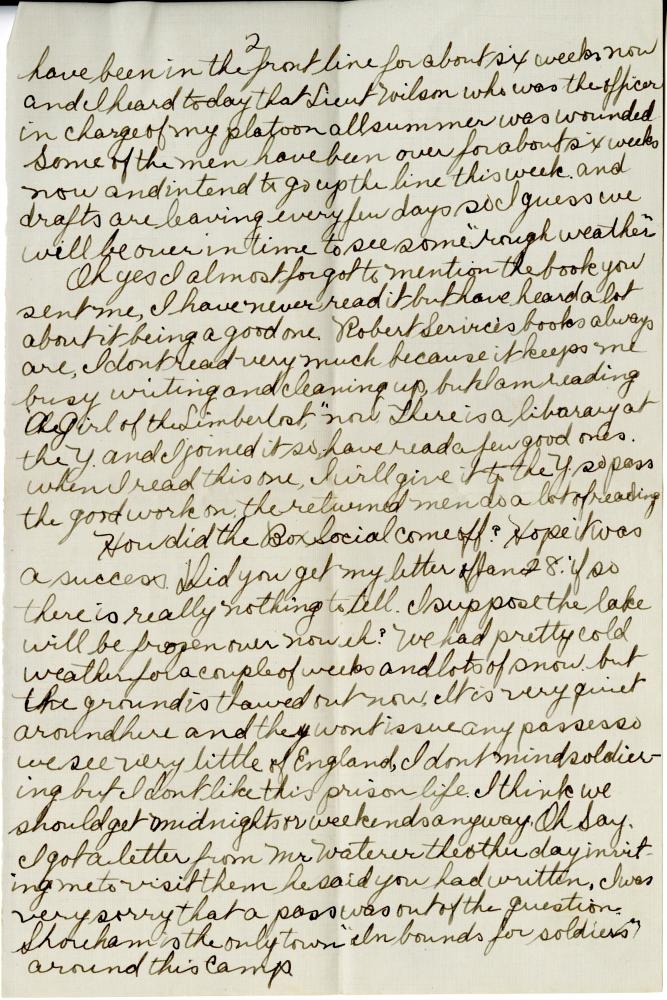 2
have been in the front line for about six weeks now
and I heard today that Lieut Wilson who was the officer
in charge of my platoon all summer was wounded
Some of the men have been over for about six weeks
now and intend to go up the line this week. and
drafts are leaving every few days so I guess we
will be over in time to see some "rough weather"
Oh yes I almost forgot to mention the book you
sent me, I have never read it but have heard a lot
about it being a good one. Robert Servirces books always
are, I dont read very much because it keeps me
busy writing and cleaning up, but I am reading
"The Girl of the Limberlost," now. There is a libarary at
the Y. and I joined it so, have read a few good ones.
when I read this one, I will give it to the Y, so pass
the good work on, the returned men do a lot of reading
How did the Box Social come off? Hope it was
a success. Did you get my letter of Jan 28. if so
there is really nothing to tell. I suppose the lake
will be frozen over now eh? We had pretty cold
weather for a couple of weeks and lots of snow. but
the ground is thawed out now. It is very quiet
around here and they wont issue any passes so
we see very little of England, I dont mind soldier-
ing but I dont like this prison life. I think we
should get midnights or weekends anyway. Oh Say.
I got a letter from Mr Waterer the other day invit-
ing me to visit them he said you had written, I was
very sorry that a pass was out of the question.
Shoreham is the only town "In bounds for soldiers"
around this camp